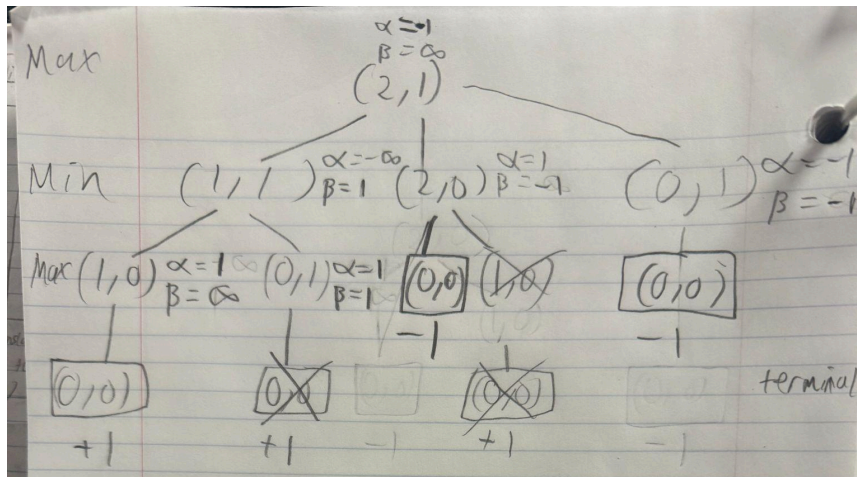 α = -1
β = ∞
Max
(2,1)
Min (1,1) α = -∞ β = 1 (2,0) α = 1 β = -1 (0,1) α = -1 β = -1
Max (1,0) α = 1 β = ∞ (0,1) α = 1 β = 1 (0,0) (1,0) (0,0)
-1 -1
(0,0) (0,0) (0,0) terminal
+1 +1 -1 +1 -1